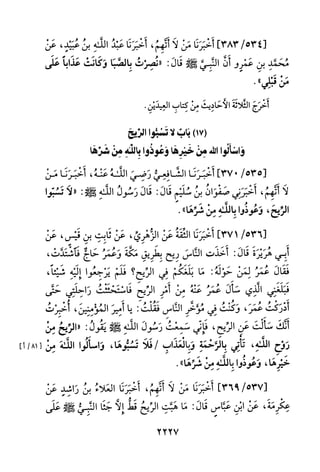 [٥٣٤/ ٣٨٣] أَخْبَرَنَا مَنْ لَا أَتَّهِمُ، أَخْبَرَنَا عَبْدُ اللَّهِ بْنُ عُبَيْدٍ، عَنْ
مُحَمَّدِ بنِ عَمْرٍو أَنَّ النَّبِيَّ ﷺ قَالَ: «نُصِرْتُ بِالصَّبَا وَكَانَتْ عَذَابًا عَلَى
مَنْ قَبْلِي».
أَخْرَجَ الثَّلَاثَةَ الْأَحَادِيثَ مِنْ كِتَابِ الْعِيدَيْنِ.
(١٧) بَابٌ لا تَسُبُّوا الرِّيحَ
وَاسْأَلُوا الله مِنْ خَيْرِهَا وَعُوذُوا بِاللَّهِ مِنْ شَرِّهَا
[٥٣٥/ ٣٧٠] أَخْبَرَنَا الشَّافِعِيُّ رَضِيَ اللَّهُ عَنْهُ، أَخْبَرَنَا مَنْ
لَا أَتَّهِمُ، أَخْبَرَنِي صَفْوَانُ بْنُ سُلَيْمٍ قَالَ: قَالَ رَسُولُ اللَّهِ ﷺ: «لَا تَسُبُّوا
الرِّيحَ، وَعُوذُوا بِاللَّهِ مِنْ شَرِّهَا».
[٥٣٦/ ٣٧١] أَخْبَرَنَا الثِّقَةُ عَنْ الزُّهْرِيِّ، عَنْ ثَابِتِ بْنِ قَيْسٍ، عَنْ
أَبِي هُرَيْرَةَ قَالَ: أَخَذَتِ النَّاسَ رِيحٌ بِطَرِيقِ مَكَّةَ وَعُمَرُ حَاجٌّ فَاشْتَدَّتْ،
فَقَالَ عُمَرُ لِمَنْ حَوْلَهُ: مَا بَلَغَكُمْ فِي الرِّيحِ؟ فَلَمْ يَرْجِعُوا إِلَيْهِ شَيْئًا،
فَبَلَغَنِي الَّذِي سَأَلَ عُمَرُ عَنْهُ مِنْ أَمْرِ الرِّيحِ فَاسْتَحْثَثْتُ رَاحِلَتِي حَتَّى
أَدْرَكْتُ عُمَرَ، وَكُنْتُ فِي مُؤَخَّرِ النَّاسِ فَقُلْتُ: يا أَمِيرَ الْمُؤْمِنِينَ، أُخْبِرْتُ
أَنَّكَ سَأَلْتَ عَنِ الرِّيحِ، فَإِنِّي سَمِعْتُ رَسُولَ اللَّهِ ﷺ يَقُولُ: «الرِّيحُ مِنْ
رَوْحِ اللَّهِ، تَأْتِي بِالرَّحْمَةِ وَبِالْعَذَابِ/ فَلَا تَسُبُّوهَا، وَاسْأَلُوا اللَّهَ مِنْ [٨١/أ]
خَيْرِهَا، وَعُوذُوا بِاللَّهِ مِنْ شَرِّهَا».
[٥٣٧/ ٣٦٩] أَخْبَرَنَا مَنْ لَا أَتَّهِمُ، أَخْبَرَنَا الْعَلَاءُ بنُ رَاشِدٍ عَنْ
عِكْرِمَةَ، عَنْ ابْنِ عَبَّاسٍ قَالَ: مَا هَبَّتِ الرِّيحُ قَطُّ إِلَّا جَثَا النَّبِيُّ ﷺ عَلَى
٢٢٢٧